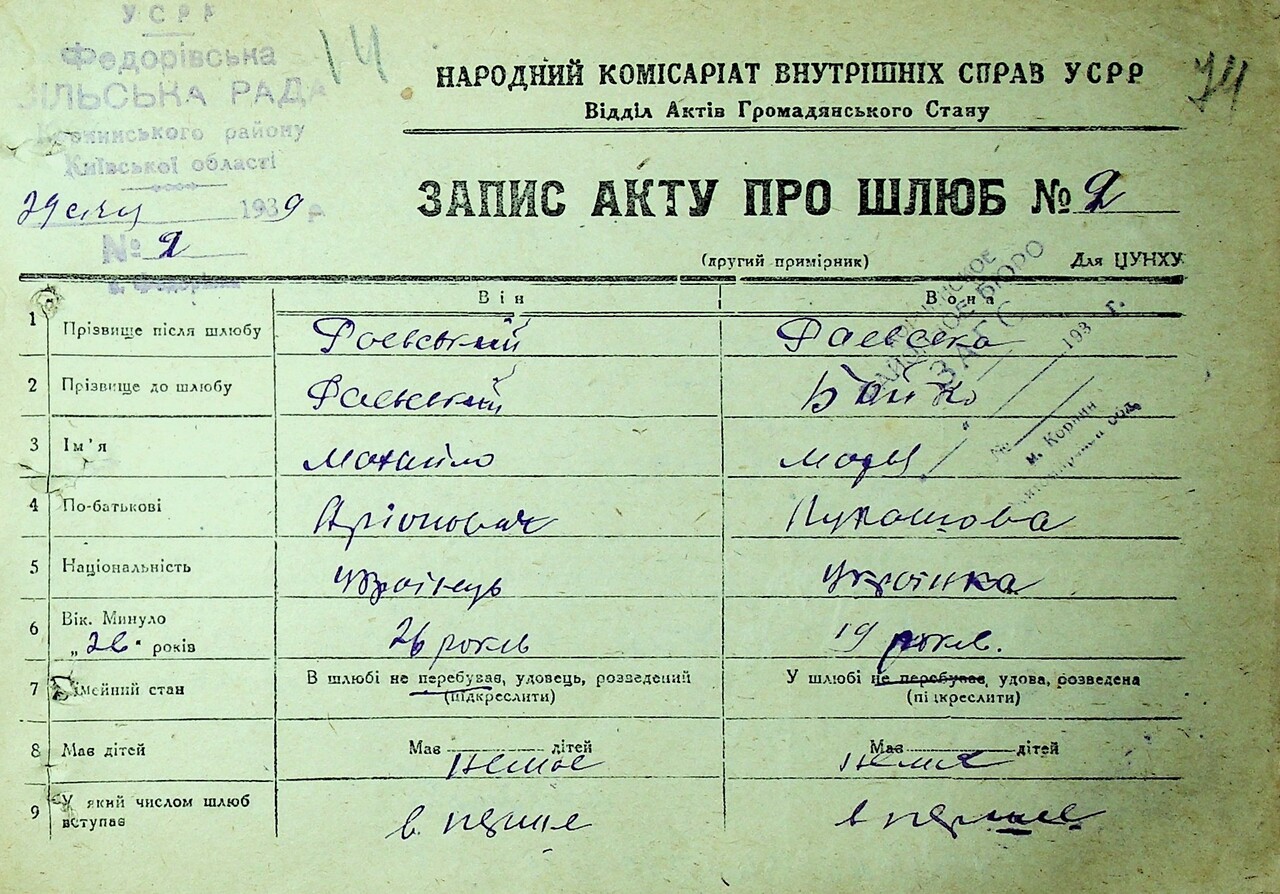 УСРР
Федорівська
СІЛЬСЬКА РАДА
району
Київської області
1939 р.
№ 2
14
74
НАРОДНИЙ КОМІСАРІАТ ВНУТРІШНІХ СПРАВ УСРР
Відділ Актів Громадянського Стану
ЗАПИС АКТУ ПРО ШЛЮБ № 2
(другий примірник) Для ЦУНХУ
Він Вона
1 Прізвище після шлюбу Фаевський Фаевска
2 Прізвище до шлюбу Фаевський Бойко
3 Ім'я Михайло Марія
4 По-батькові Лукашова
5 Національність Українець Українка
6 Вік. Минуло „26" років 26 років 19 років.
7 Сімейний стан В шлюбі не перебував, удовець, розведений (підкреслити) У шлюбі не перебував, удова, розведена (підкреслити)
8 Мав дітей Мав дітей немає Мав дітей немає
9 У який числом шлюб вступав в перше в перше
РАЙОННОЕ БЮРО
ЗАГС
193 г.
№
м. Корнин